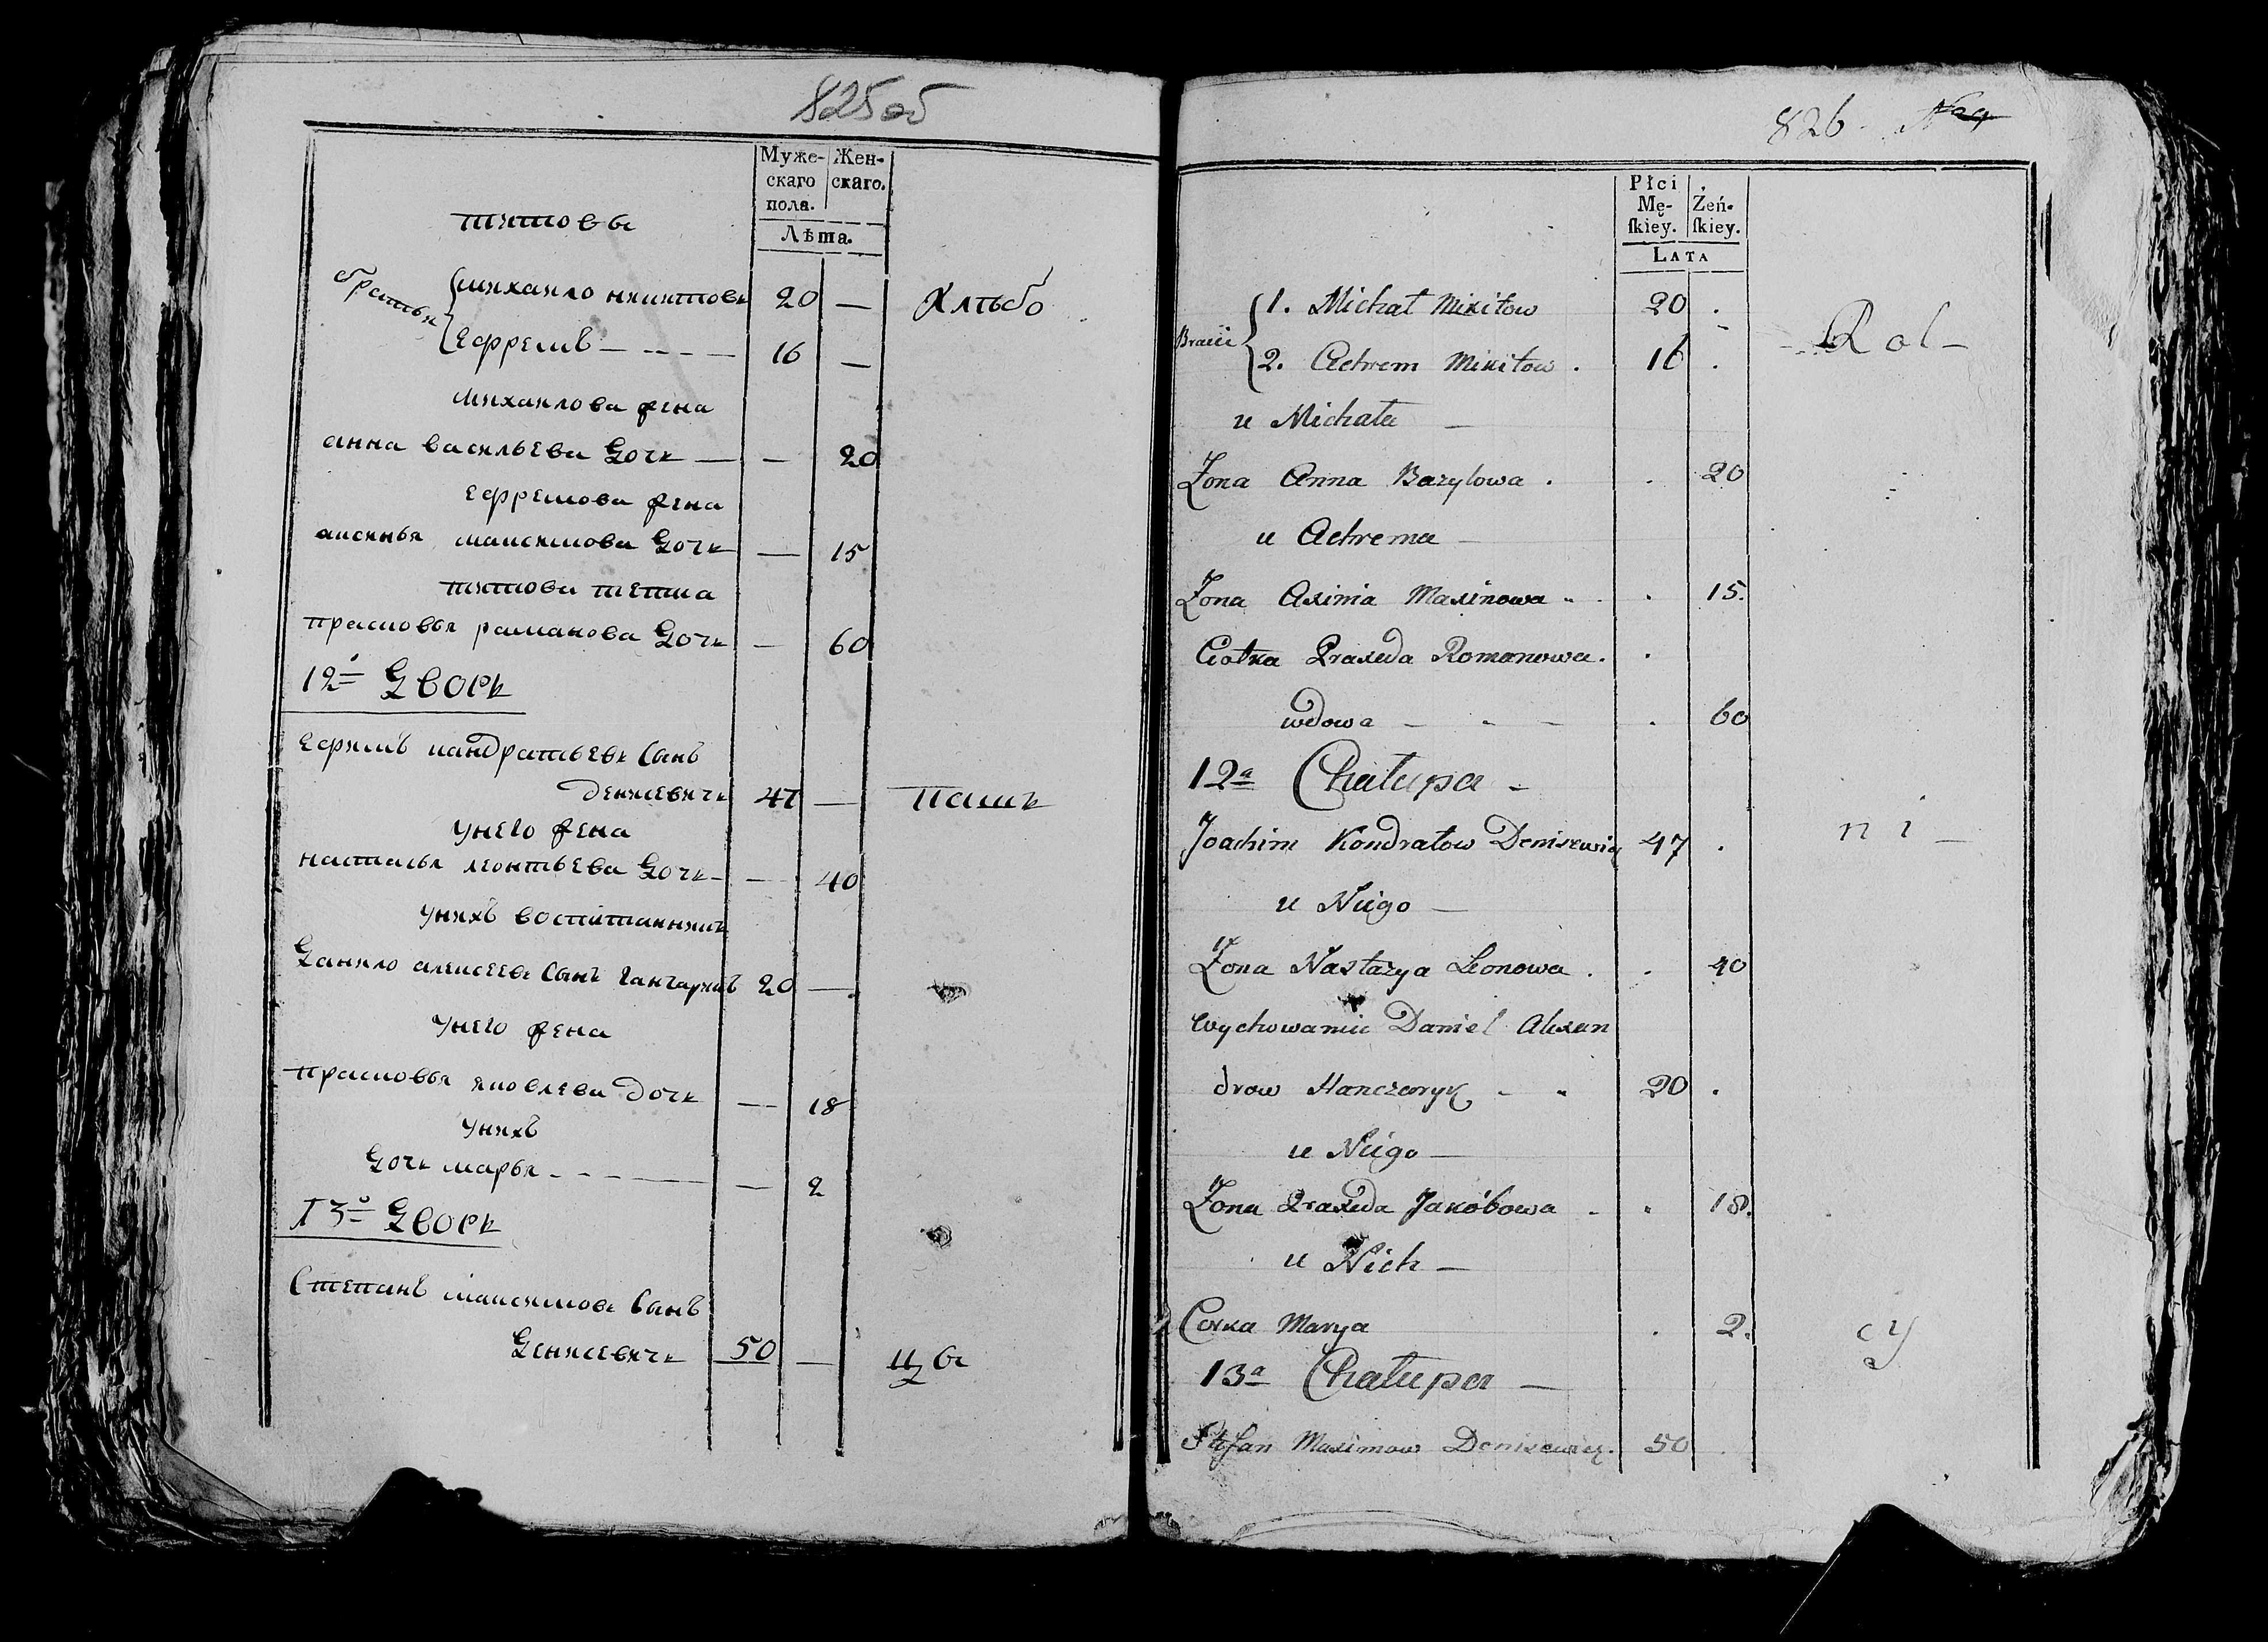 825об
Муже- Жен-
скаго скаго.
пола.
Лѣта.
титовы
братья
михайло никитовъ 20 — Хлѣбо
ефремъ — — — 16 —
михайлова жена
анна васильева дочь — — 20
ефремова жена
аксинья максимова дочь — 15
титова тетка
прасковья раманова дочь — 60
12й дворъ
ефимъ кандратьевъ сынъ
денисевичъ 47 — паш
у него жена
настасья леонтьева дочь — — 40
у нихъ воспитанникъ
данило алексеевъ сынъ ганчарикъ 20 —
у него жена
прасковья яковлева дочь — 18
у нихъ
дочь марья — — — — 2
13й дворъ
степанъ максимовъ сынъ
денисевичъ 50 — цы
826
Płci
Mę- Żeń-
ſkiey. ſkiey.
LATA
Bracii
1. Michał Mikitow 20 . Rol-
2. Achrem Mikitow . 16 .
u Michała —
Żona Anna Bazylowa . . 20
u Achrema —
Żona Axinia Maximowa . . 15.
Ciotka Praxeda Romanowa. .
wdowa — - — . 60
12a Chałupa -
Joachim Kondratow Denisewicz 47 . ni -
u Niego —
Żona Nastazya Leonowa . . 40
Wychowaniec Daniel Alexan
drow Hanczaryk - - 20 .
u Niego —
Żona Praxeda Jakóbowa . . 18.
u Nich —
Corka Marya . 2. cy
13a Chałupa —
Stefan Maximow Denisewicz. 50 .